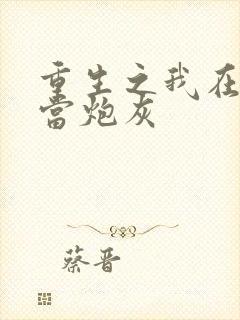 重生之我在
当炮灰
蔡晋